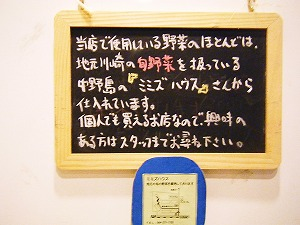 当店で使用している野菜のほとんどは、
地元川崎の旬野菜を扱っている
中野島の"ミミズハウス"さんから
仕入れています。
個人でも買えるお店なので、興味の
ある方はスタッフまでお尋ね下さい。
ミミズハウス